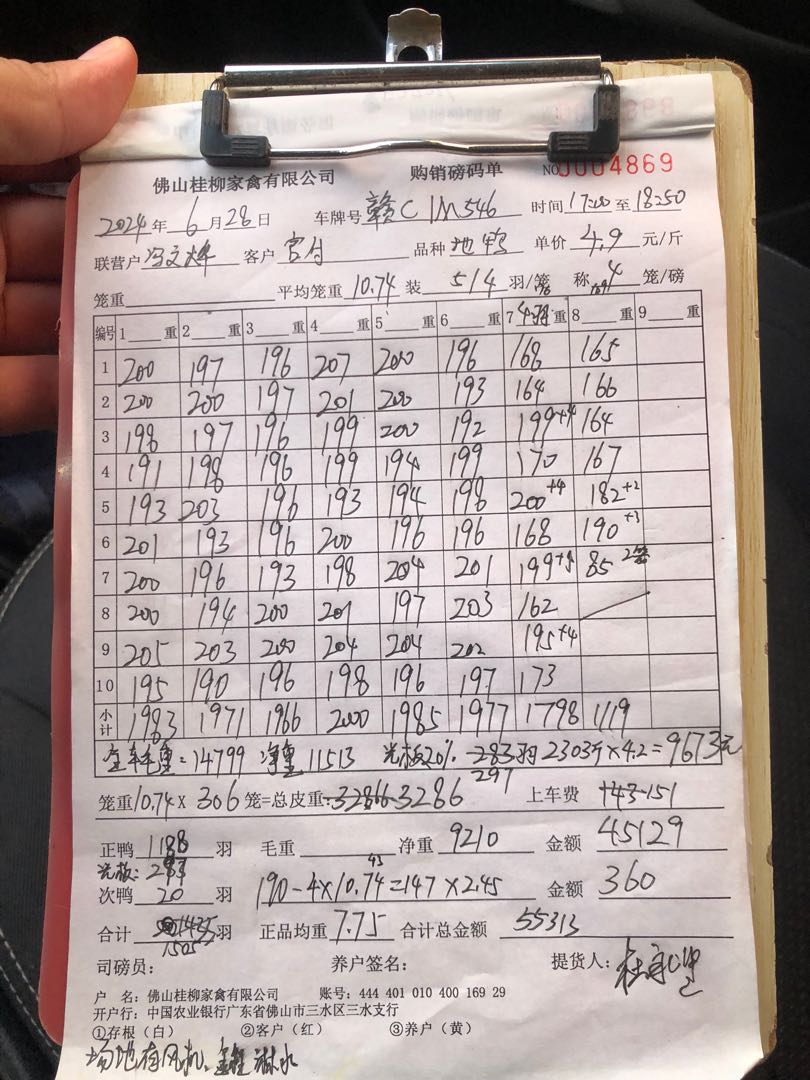 佛山桂柳家禽有限公司 购销磅码单 NO 0004869
2024年6月28日 车牌号 赣C1M546 时间17:00至18:50
联营户 冯文 客户 官付 品种 地鸭 单价 4.9 元/斤
笼重 平均笼重 10.74 装 5/4 羽/笼 称 4 笼/磅
编号 1 重 2 重 3 重 4 重 5 重 6 重 7 4羽 重 8 重 9 重
1 200 197 196 207 200 196 168 165
2 200 200 197 201 200 193 164 166
3 198 197 196 199 200 192 199+4 164
4 191 198 196 199 194 199 170 167
5 193 203 196 193 194 198 200+4 182+2
6 201 193 196 200 196 196 168 190+3
7 200 196 193 198 204 201 199+4 85 2笼
8 200 194 200 201 197 203 162
9 205 203 200 204 204 202 195+4
10 195 190 196 198 196 197 173
小计 1983 1971 1966 2000 1985 1977 1798 1119
全车毛重=14799 净重11513 光板20% 283羽 2303斤×4.2=9673元
297
笼重10.74×306笼=总皮重:32866 3286 上车费 +43-151
正鸭 1188 羽 毛重 净重 9210 金额 45129
光板:
次鸭 20 羽 190-4×10.74=147×2.45 金额 360
43
合计 1435 羽 正品均重 7.75 合计总金额 55313
1505
司磅员: 养户签名: 提货人:
户 名:佛山桂柳家禽有限公司 账号:444 401 010 400 169 29
开户行:中国农业银行广东省佛山市三水区三水支行
①存根(白) ②客户(红) ③养户(黄)
场地有风机、淋水